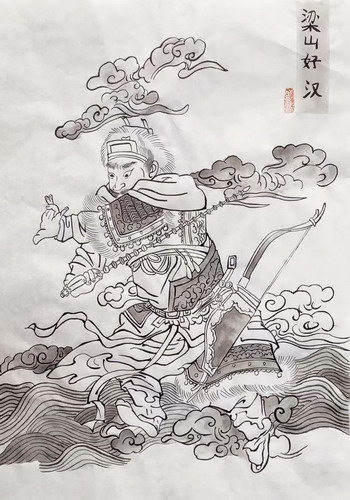 梁山好汉